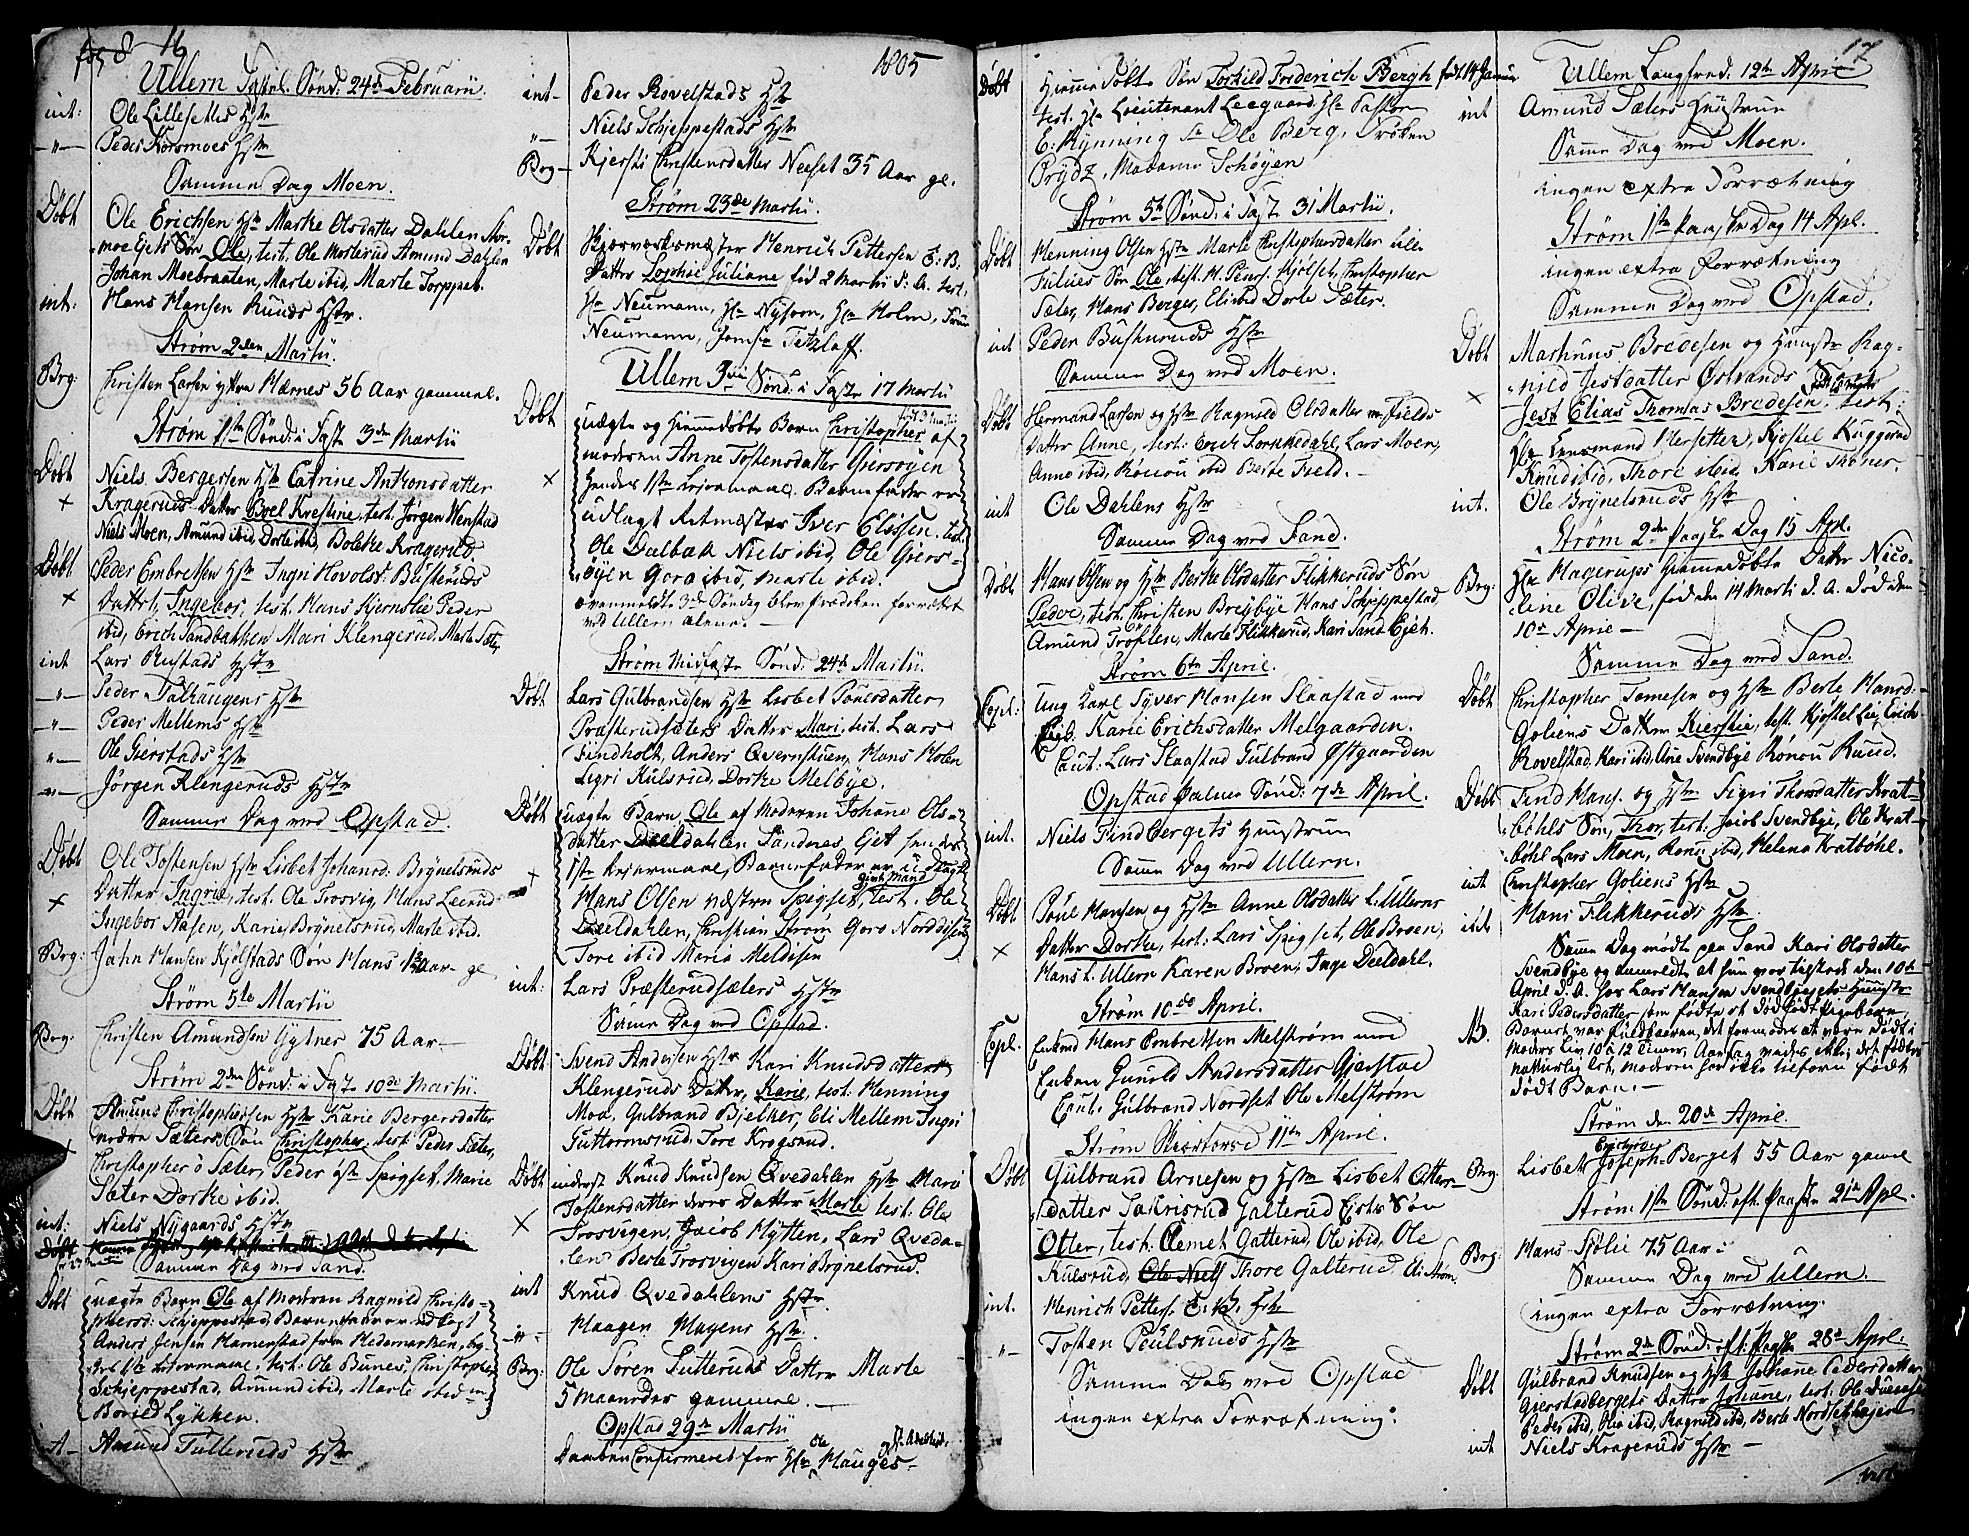 16
1805
Ullern Fastel. Sønd: 24de Februarii
int: Ole Lillesettes Hstr
—"— Peder Korsmoes Hstr
Samme Dag Moen.
Døbt Ole Erichsen Hstr Marthe Olsdatter Dahlen
Søn Ole, test. Ole Amund Dahlen
Johan Moebraaten, Marte ibid, Marte Torppet.
int: Hans Hansen Ruuds Hstr.
Strøm 2den Martii.
Brg: Christen Larsen yttre Hærnes 56 Aar gammel.
Strøm 1ste Sønd: i Fast: 3de Martii
Døbt Niels Bergersen Hstr Catrine Anthonsdatter
+ Krageruds Datter Boel Kirstine, test. Jørgen Wenstad
Niels Moen, Amund ibid, Dorte ibid, Boletke Kragerud
Døbt Peder Embretsen Hstr Ingri Hovelsd: Busteruds
× Datter, Ingebor, test. Hans Kjernslie Peder
ibid, Erich Sandbakken Mari Klengerud, Marte
int Lars Rustads Hstr
—"— Peder Falhaugens Hstr
—"— Peder Mellems Hstr
"— Ole Gierstads Hstr
—"— Jørgen Klengeruds Hstr
Samme Dag ved Opstad.
Døbt Ole Tostensen Hstr Lisbet Johansd: Brynelsruds
× Datter Ingrie, test. Ole Trosvig, Hans Leerud
Ingebor Aasen, Karie Brynelsrud, Marte ibid.
Brg: Jahn Hansen Kjølstads Søn Hans Aar ge
Strøm 5te Martii
Brg: Christen Amundsen Gytner 75 Aar
Strøm 2den Sønd: i Fast 10de Martii.
Døbt Amund Christophersen Hstr Karie Bergersdatter
nedre Sæters Søn Christopher, test. Peder Sæter,
Christopher ö Sæter, Peder Spigset, Marie
Sæter Dorthe ibid.
int: Niels Nygaards Hstr
Samme Dag ved Sand.
Døbt uægte Barn Ole af Moderen Ragnild Christo-
phersd: Schjeppestad, Barnefader er udlagt
Anders Jensen Hamerstad fra Hedemarken, beg-
test: Ole Bunes, Christopher
Schjeppestad, Amund ibid, Marte ibid
Boried Løkken.
Amund Tulleruds Hstr
int- Peder Rovelstads Hstr
"— Niels Schjeppestads Hstr
Brg— Kjersti Christensdatter Neset 35 Aar ge.
Strøm 23de Martii.
Døbt Henrich Pettersen E: B.
Datter Sophie Juliane fød 2 Martii d: A. test:
Hr Neumann, Hr Nysoon, Hr Holm, Frue
Neumann, Jomfr Tetzlaff.
Ullern 3die Sønd: i Fast: 17 Martii
Døbt uægte og Hiemmedøbte Barn Christopher af
Moderen Anne Tostensdatter Giersøyen
× hendes 1ste Leiermaal. Barnefader er
udlagt Ritmæster Iver Elissen. test.
Ole Dalbak Niels ibid, Ole Giers-
øyen Gora ibid, Marte ibid.
ovenmeldte 3de Søndag blev Prædiken forrættet
ved Ullern alene.
Strøm Midfaste Sønd: 24de Martii.
Døbt Lars Gulbrandsen Hstr Lisbet Povelsdatter
Præsterudsæters Datter Mari, test. Lars
Findholt, Anders Qvernstuen, Hans Holen
Sigri Kulsrud, Dorthe Melbye.
Døbt uægte Barn Ole af Moderen Johane Ols-
datter Deeldahlen Sandnes Ejet hendes
+ 1ste Leiermaal, Barnefader er
Hans Olsen næstre Spigset, test. Ole
Deeldahlen, Christian Strøm Goro Norddisen
Tore ibid Maria Meldisen
int: Lars Præsterudsæters Hstr
Samme Dag ved Opstad.
Døbt Svend Andersen Hstr Kari Knudsdatter
Klengeruds Datter, Karie, test. Henning
Moe, Gulbrand Bjelker, Eli Mellem Ingri
Guttormsrud, Tore Krogsrud.
Døbt indest Knud Knudsen Qvedahlen Hstr Mari
Tostensdatter deres Datter Marte test. Ole
× Trosvigen, Jacob Hytten, Lars Qveda-
len Berte Trosvigen Kari Brynelsrud.
int Knud Qvedahlens Hstr
-"- Haagen Hagens Hstr.
Brg: Ole Soren Tutteruds Datter Marte
5 Maaneder gammel.
Opstad 29de Martii
Daaben Confirmeret for Hr Ole Hauges
17
Døbt Hiemmedøbt Søn Torkild Frederich Bergh fød 14 Januar
test. Hr Lieutenant Leegaard Hr Pastor
E: Hynning Hr Ole Berg, Frøken
Prydz, Madame Schøyen
Strøm 5te Sønd: i Fast: 31 Martii.
Døbt Henning Olsen Hstr Marte Christophersdatter Lille
Tulies Søn Ole, test. H. Peders. Kjølset, Christopher
Sæter, Hans Berger, Eli ibid Dorte Sæter.
int Peder Busteruds Hstr
Samme Dag ved Moen.
Døbt Hermand Larsen og Hstr Ragnild Olsdatter Fields
Datter Anne, test: Erich Sorknedahl, Lars Moen,
Anne ibid, Rønou ibid Berte Field.
int Ole Dahlens Hstr
Samme Dag ved Sand.
Døbt Hans Olsen og Hstr Berthe Olsdatter Flikkeruds Søn
Peder, test. Christen Brejbye Hans Schjeppestad,
Amund Trøften, Marte Flikkerud, Kari Sand Ejet.
Strøm 6te April.
Copl: Ung Karl Syver Hansen Slaastad med
Pige: Karie Erichsdatter Melgaarden.
Caut: Lars Slaastad Gulbrand Østgaarden
Opstad Palme Sønd: 7de April.
int. Niels Findbergets Huustrue
Samme Dag ved Ullern.
Døbt Poul Hansen og Hstr Anne Olsdatter L: Ullerns
× Datter Dorthe, test: Lars Spigset, Ole Broen,
Hans L. Ullern Karen Broen, Inge Deeldahl.
Strøm 10de April.
Copl. Enkemd Hans Embretsen Melstrøm med
Enken Gunild Andersdatter Gjerstad
Caut: Gulbrand Nordset Ole Melstrøm
Strøm Skiertorsd 11te April.
Døbt Gulbrand Arnesen og Hstr Lisbet Otters-
datter Sakrisrud Galterud Eiets Søn
Otter, test: Clemet Gatterud, Ole ibid, Ole
Kulsrud, Thore Galterud, Eli Strøm.
int. Henrich Petters: E: B. Hstr
"- Tosten Peulsruds Hstr
Samme Dag ved Opstad
ingen extra Forretning.
Ullern Langfred: 12te April
int Amund Sæters Huustrue
Samme Dag ved Moen.
ingen extra Forretning
Strøm 1ste Paaske Dag 14 Apl.
ingen extra Forretning
Samme Dag ved Opstad.
Døbt Mathuus Bredesen og Huustr Rag-
nild Jestdatter Østvands Søn
× Jest Elias Thomas Bredesen, test:
Hr Lensmand Hersetter, Kjøstel Kuggerud
Knud ibid, Thore ibid, Karie Thoner.
int. Ole Brynelsruds Hstr
Strøm 2den Paaske Dag 15 Apl.
Brg: Hr Hagerups Hiemmedøbte Datter Nico-
line Olive, fød den 14 Marti d. A. død den
10de April
Samme Dag ved Sand.
Døbt Christopher Tomesen og Hstr Berte Hansd:
Goliens Datter Kierstie, test. Kjøstel Lie, Erich
Rovelstad, Kari ibid, Ane Svendbye Rønou Ruud.
Døbt Find Hans. og Hstr Sigri Thorsdatter Krat-
bøhls Søn, Thor, test: Jacob Svendbye, Ole Krat-
bøhl Lars Moen, Ronu ibid, Helena Kratbøhl.
int Christopher Goliens Hstr
int Hans Flikkeruds Hstr.
Samme Dag mødte paa Sand Kari Olsdatter
Svendbye og anmeldte at hun var tilstæde den 10de
April d. A. hos Lars Hansen Svendbyeejets Huustr
Kari Pedersdatter som fødte et dødfødt Pigebarn,
NB. Barnet var fuldbaaren, det formodes at være dødt i
Moders Liv 10 a 12 Timer, Aarsag vides ikke; det fødtes
naturlig let, Moderen har ikke tilforn født
dødt Barn.
Strøm den 20de April.
Brg: Lisbet Joseph Berget 55 Aar gamle
Strøm 1ste Sønd: eft. Paaske 21de Apl.
Brg: Hans Sjølie 75 Aar
Samme Dag ved Ullern.
ingen extra Forretning.
Strøm 2de Sønd: eft: Paaske 28de April.
Døbt Gulbrand Knudsen og Hstr Johane Pedersdatter
Gierstadbergets Datter Johane, test: Ole
Peder ibid, Olia ibid, Ragnild ibid, Berte Nordsethagen
int Niels Krageruds Hstr